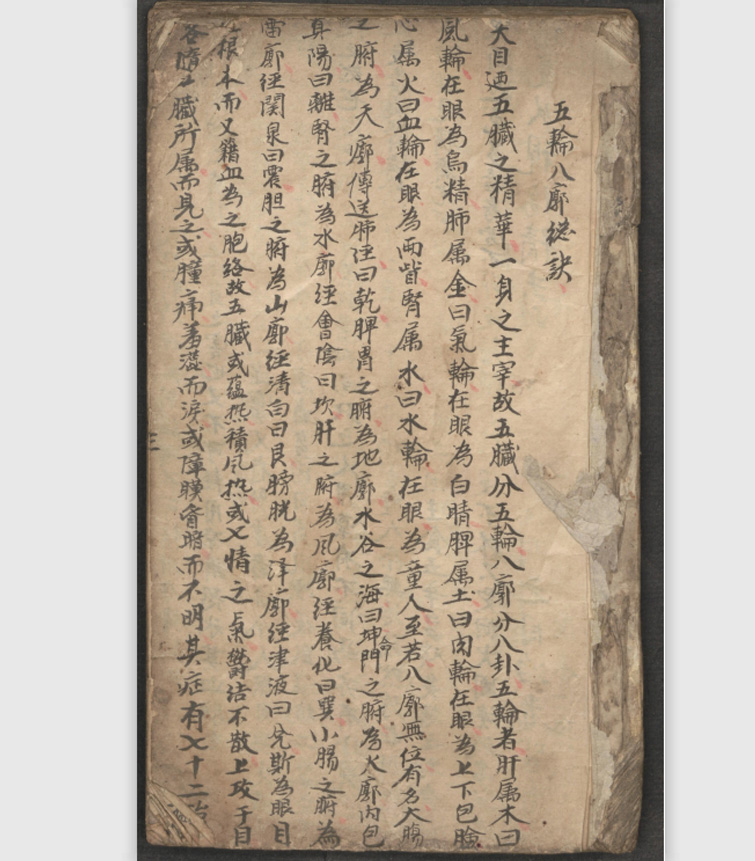 五輪八廓總訣
夫目迺五臟之精華一身之主宰故五臟分五輪八廓分八卦五輪者肝属木曰
風輪在眼為烏精肺属金曰氣輪在眼為白睛脾属土曰肉輪在眼為上下包臉
心属火曰血輪在眼為兩眥腎属水曰水輪在眼為童人至若八廓無位有名大腸
之腑為天廓傳送肺經曰乾脾胃之腑為地廓水谷之海曰坤命門之腑為火廓内包
真陽曰離腎之腑為水廓經會陰曰坎肝之腑為風廓經養化曰巽小腸之腑為
雷廓經関泉曰震胆之腑為山廓經清白曰艮膀胱為泽廓經津液曰兌斯為眼目
根本而又籍血為之胞络故五臟或蕴热積風热或七情之氣欝结不散上攻于目
各隨五臟所属而見之或腫而痛羞澁而淚或障膜昏暗而不明其症有七十二治